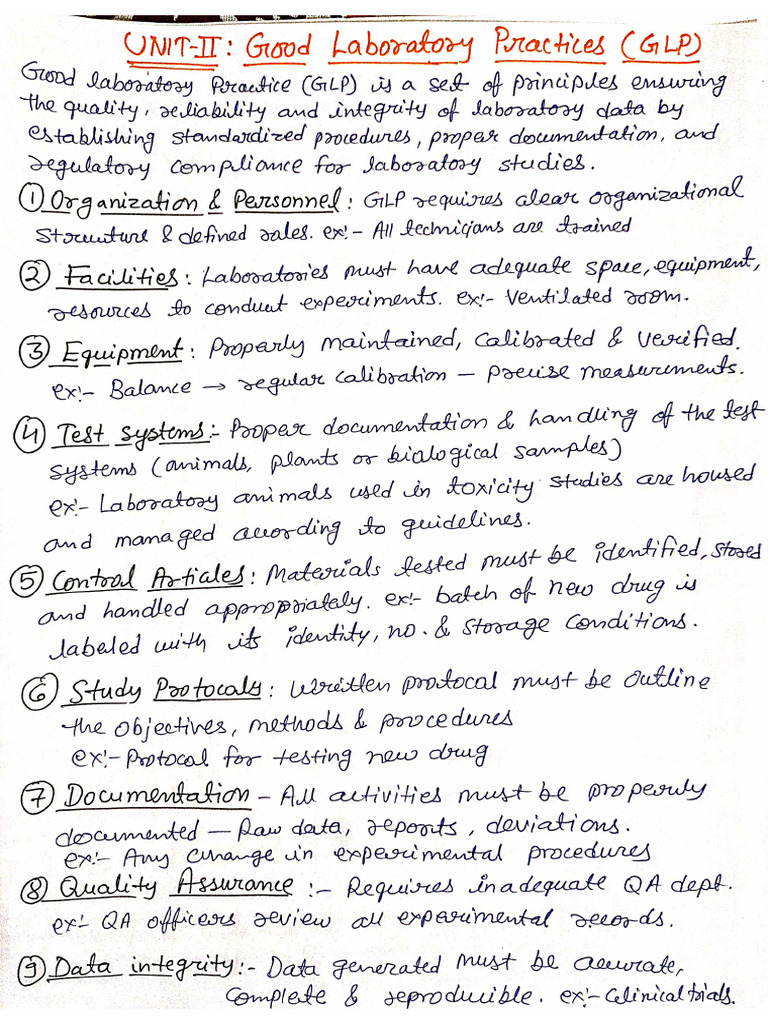 UNIT-II: Good Laboratory Practices (GLP)
Good laboratory Practice (GLP) is a set of principles ensuring
the quality, reliability and integrity of laboratory data by
establishing standardized procedures, proper documentation, and
regulatory compliance for laboratory studies.
① Organization & Personnel: GLP requires clear organizational
structure & defined roles. ex:- All technicians are trained
② Facilities: Laboratories must have adequate space, equipment,
resources to conduct experiments. ex:- Ventilated room.
③ Equipment: Properly maintained, Calibrated & Verified.
ex:- Balance → regular calibration – precise measurements.
④ Test systems:- Proper documentation & handling of the test
systems (animals, plants or biological samples)
ex:- Laboratory animals used in toxicity studies are housed
and managed according to guidelines.
⑤ Control Articles: Materials tested must be identified, stored
and handled appropriately. ex:- batch of new drug is
labeled with its identity, no. & storage conditions.
⑥ Study Protocols: Written protocal must be outline
the objectives, methods & procedures
ex:- Protocol for testing new drug
⑦ Documentation – All activities must be properly
documented – Raw data, reports, deviations.
ex:- Any change in experimental procedures
⑧ Quality Assurance :- Requires inadequate QA dept.
ex:- QA officers review all experimental records.
⑨ Data integrity:- Data generated must be accurate,
complete & reproducible. ex:- Clinical trials.